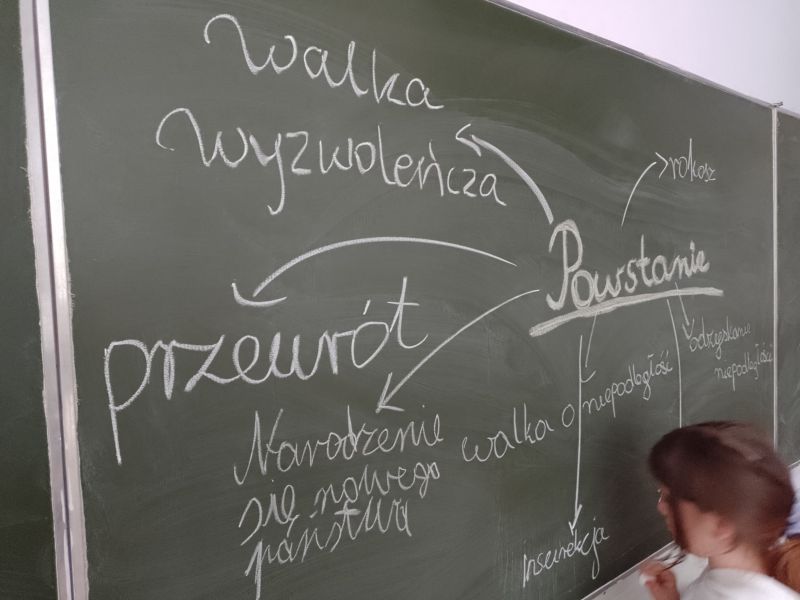 walka
wyzwoleńcza
rokosz
Powstanie
przewrót
odzyskanie
niepodległości
walka o niepodległość
Narodzenie
się nowego
państwa
insurekcja